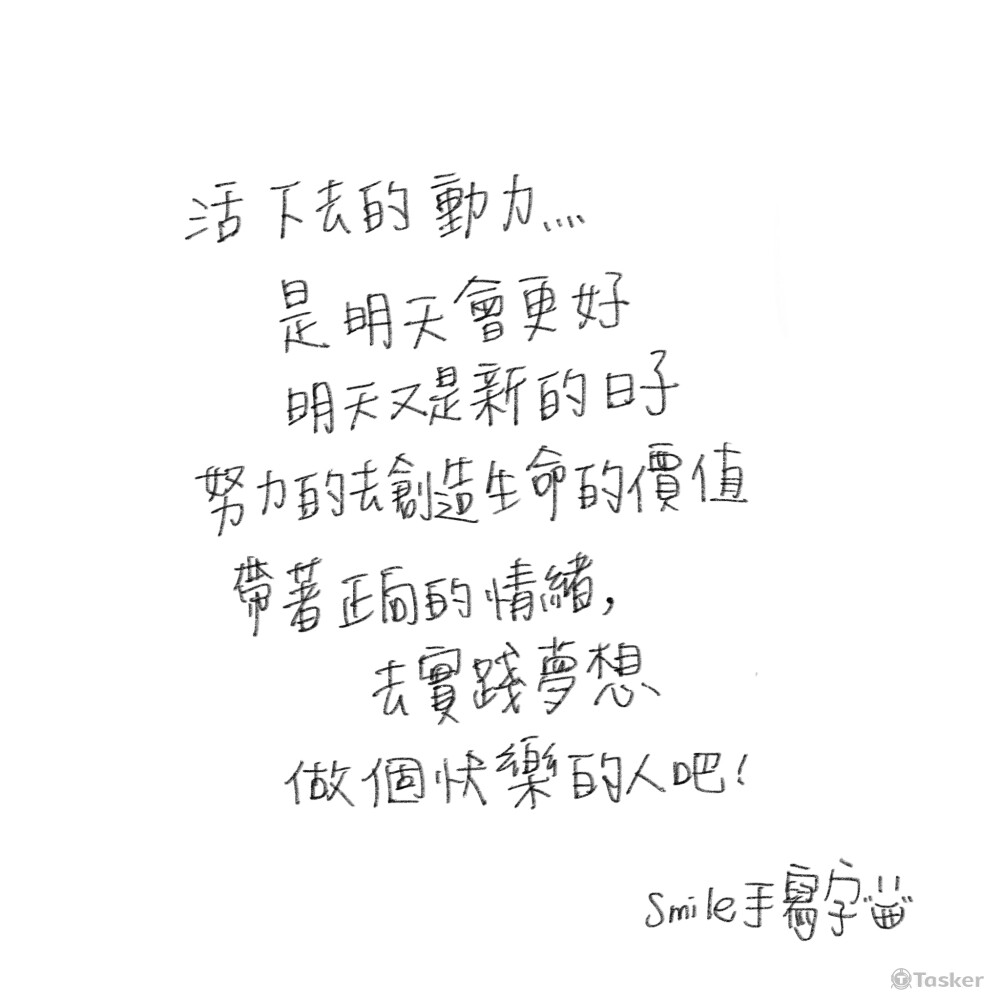 活下去的動力....
是明天會更好
明天又是新的日子
努力的去創造生命的價值
帶著正向的情緒,
去實踐夢想
做個快樂的人吧!
Smile手寫字
Tasker